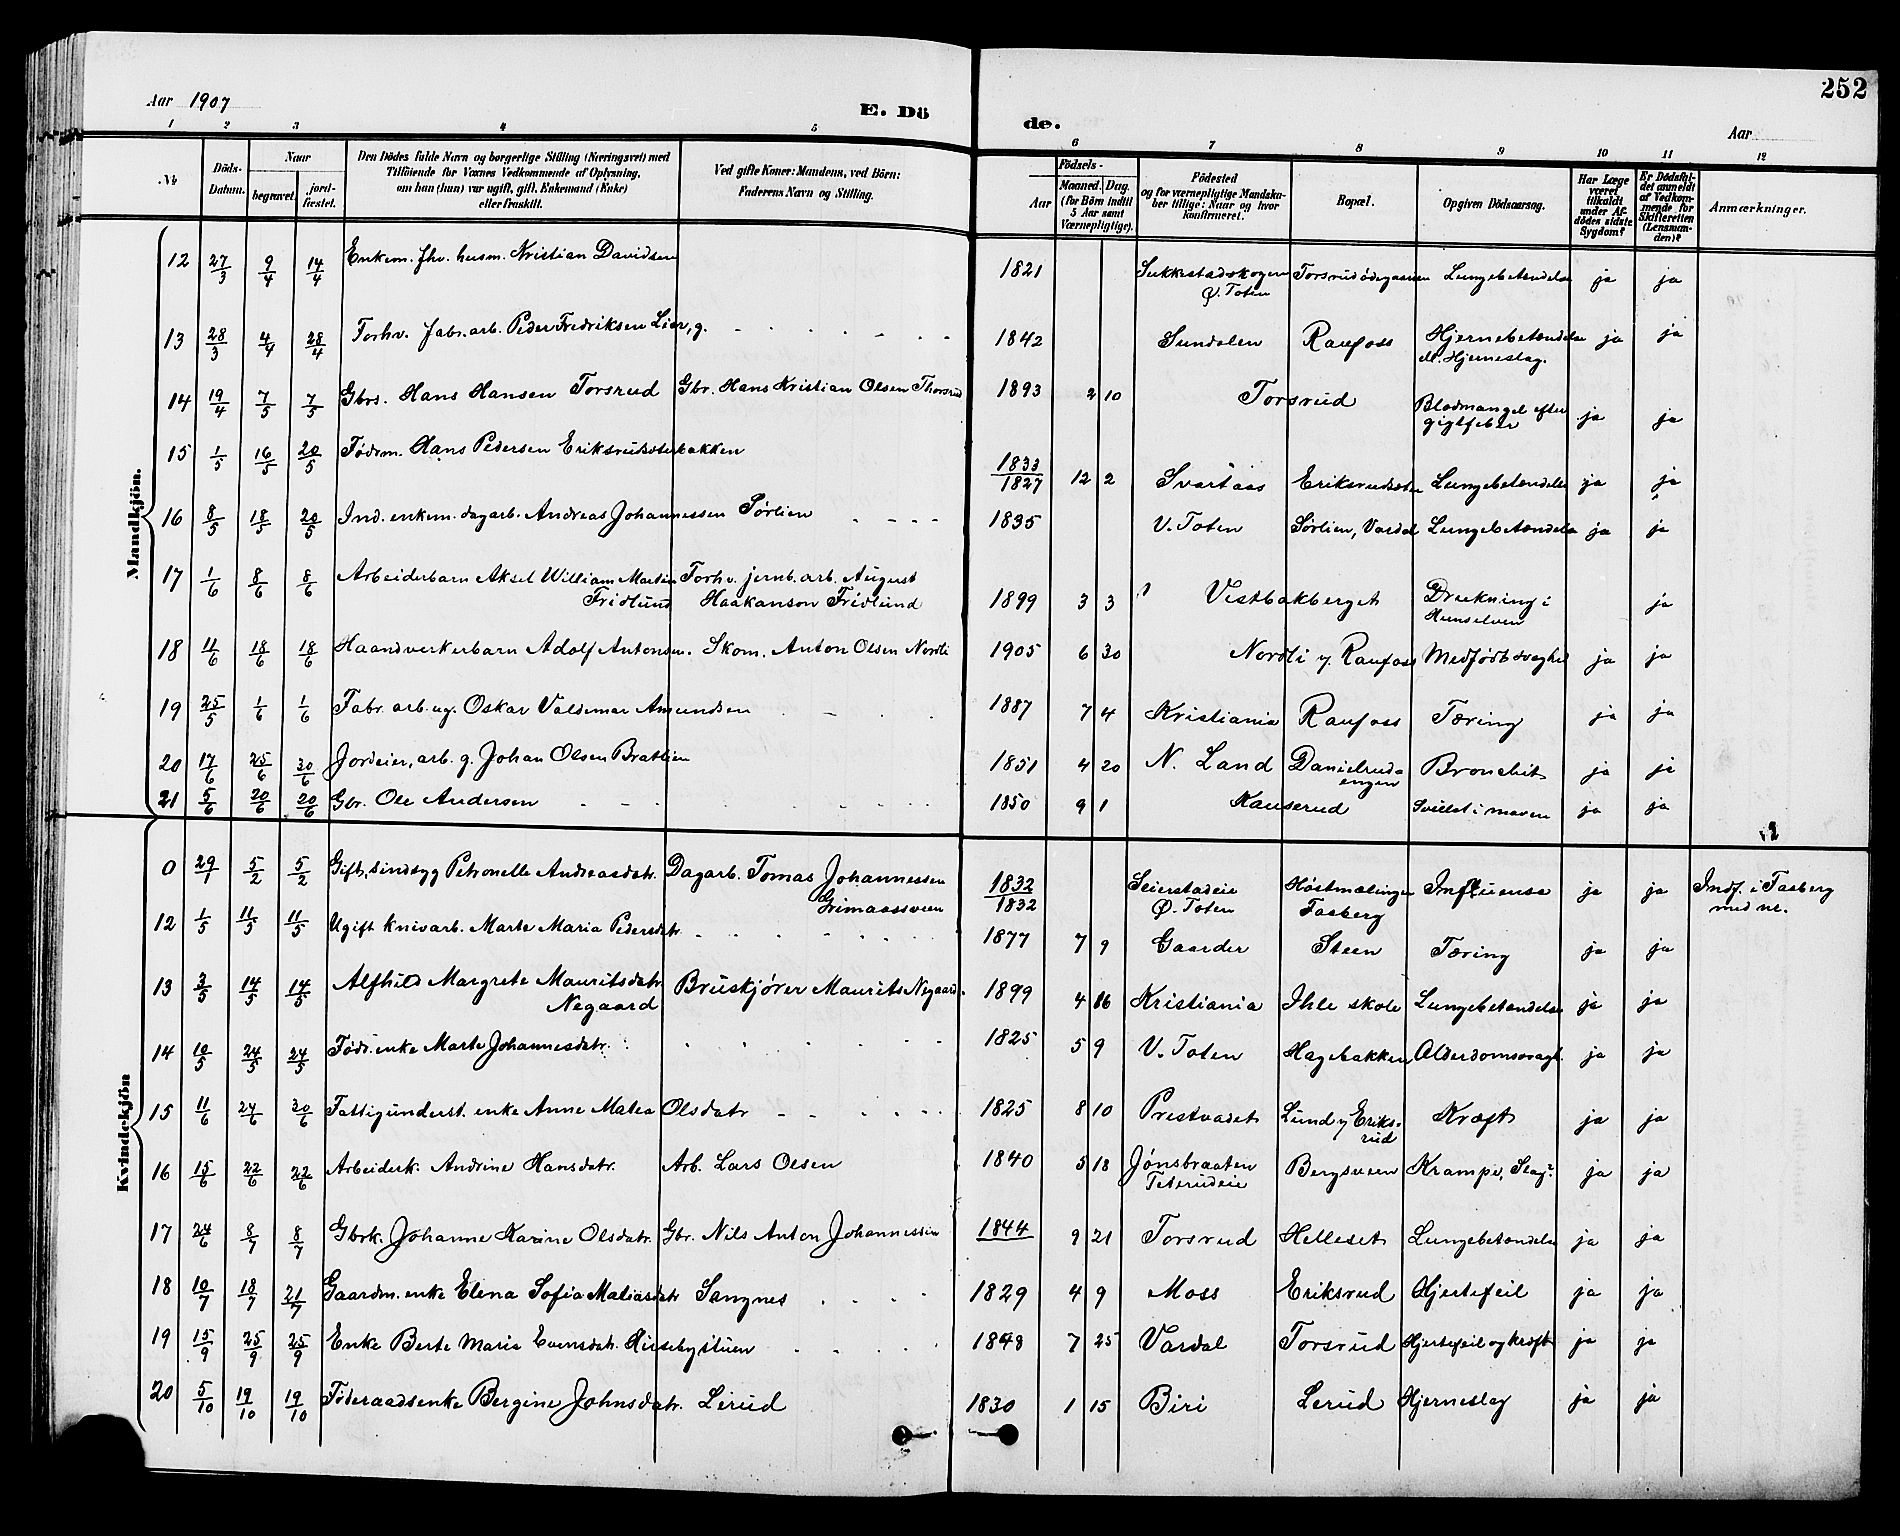 252
Aar 1907
E. Dö de.
Aar
1 2 3 4 5 6 7 8 9 10 11 12
No
Döds-Datum.
Naar
begravet. jord-fæstet.
Den Dödes fulde Navn og borgerlige Stilling (Næringsvei) med
Tilföiende for Voxnes Vedkommende af Oplysning,
om han (hun) var ugift, gift, Enkemand (Enke)
eller fraskilt.
Ved gifte Koner: Mandens, ved Börn:
Faderens Navn og Stilling.
Födsels-
Aar Maaned. Dag.
(for Börn indtil
5 Aar samt
Værnepligtige).
Födested
og for værnepligtige Mandska-
ber tillige: Naar og hvor
konfirmeret.
Bopæl.
Opgiven Dödsaarsag.
Har Læge
været
tilkaldt
under Af-
dödes sidste
Sygdom?
Er Dödsfal-
det anmeldt
af Vedkom-
mende for
Skifteretten
(Lensman-
den)?
Anmærkninger.
Mandkjön.
12 27/3 9/4 14/4 Enkem. fhv. husm. Kristian Davidsen 1821 Sukkestadskogen Ø. Toten Torsrudødegaarden Lungebetændelse ja ja
13 28/3 4/4 28/4 Forhv. fabr. arb. Peder Fredriksen Lier, g. 1842 Sundalen Raufoss Hjernebetændelse el. Hjerneslag. ja ja
14 19/4 7/5 7/5 Gbrs. Hans Hansen Torsrud Gbr. Hans Kristian Olsen Thorsrud 1893 2 10 Torsrud Blodmangel efter gigtfeber ja ja
15 1/5 16/5 20/5 Födrm. Hans Pedersen Eriksrudsæterbakken 1833/1827 12 2 Svartaas Eriksrudsæter Lungebetændelse ja ja
16 8/5 18/5 20/5 Ind. enkem. dagarb. Andreas Johannessen Sørlien 1835 V. Toten Sørlien, Vardal Lungebetændelse ja ja
17 1/6 8/6 8/6 Arbeiderbarn Aksel William Martin Fridlund Forhv. jernb. arb. August Haakanson Fridlund 1899 3 3 Vestbakberget Drukning i Hunselven ja
18 11/6 18/6 18/6 Haandverkerbarn Adolf Antonsen. Skom. Anton Olsen Nordli 1905 6 30 Nordli y Raufoss Medfødt svaghed ja ja
19 25/5 1/6 1/6 Fabr. arb. ug. Oskar Valdemar Amundsen 1887 7 4 Kristiania Raufoss Tæring ja ja
20 17/6 25/6 30/6 Jordeier, arb. g. Johan Olsen Bratlien 1851 4 20 N. Land Danielrud-engen Bronchit ja ja
21 5/6 20/6 20/6 Gbr. Ole Andersen 1850 9 1 Kauserud Svulst i maven ja ja
Kvindekjön
0 29/1 5/2 5/2 Gift, sindsyg Petronelle Andreasdatr. Dagarb. Tomas Johannessen Grimaassveen 1832/1832 Seierstadeie Ø. Toten Høstmælingen Faaberg Influensa ja ja Indf. i Faaberg med nr.
12 1/5 11/5 11/5 Ugift knivarb. Marte Maria Pedersdatr. 1877 7 9 Gaarder Steen Tæring ja ja
13 3/5 14/5 14/5 Alfhild Margrete Mauritsdatr. Negaard Bruskjører Maurits Negaard. 1899 4 16 Kristiania Ihle skole Lungebetændelse ja ja
14 10/5 24/5 24/5 Födr. enke Marte Johannesdatr. 1825 5 9 V. Toten Hagebakken Alderdomssvagh. ja ja
15 11/6 24/6 30/6 Fattigunderst. enke Anne Matea Olsdatr 1825 8 10 Prestvadet Lund y Eriks-rud Kræft ja ja
16 15/6 22/6 22/6 Arbeiderk. Andrine Hansdatr. Arb. Lars Olsen 1840 5 18 Jønsbraaten Teterudeie Bergsveen Krampe, Slag? ja ja
17 24/6 8/7 8/7 Gbrk. Johanne Karine Olsdatr. Gbr. Nils Anton Johannessen 1844 9 21 Torsrud Helleset Lungebetændelse ja ja
18 10/7 18/7 21/7 Gaardm. enke Elena Sofia Matiasdatr Sangnes 1829 4 9 Moss Eriksrud Hjertefeil ja ja
19 15/9 25/9 25/9 Enke Berte Maria Evensdatr. Husebystuen 1848 7 25 Vardal Torsrud Hjertefeil og kræft ja ja
20 5/10 19/10 19/10 Föderaadsenke Bergine Johnsdatr. Lerud 1830 1 15 Biri Lerud Hjerneslag ja ja